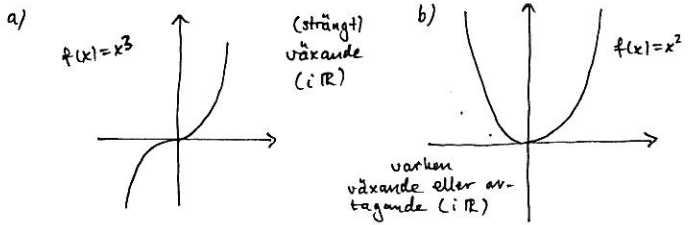 a)
f(x)=x³
(strängt)
växande
(i ℝ)
b)
f(x)=x²
varken
växande eller av-
tagande (i ℝ)